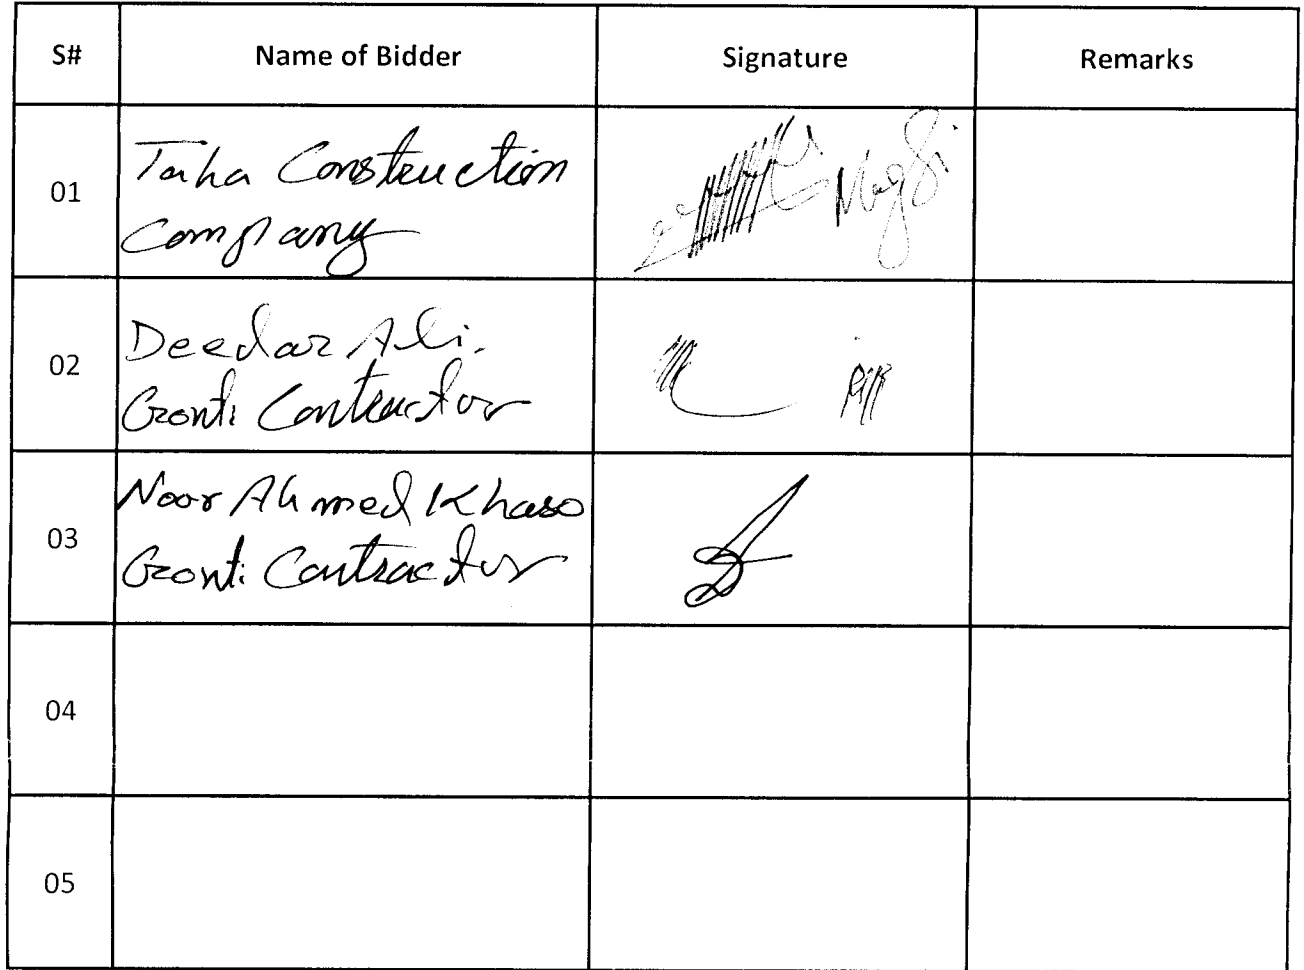 S# Name of Bidder Signature Remarks
01 Taha Construction
Company
02 Deedar Ali.
Govt: Contractor
03 Noor Ahmed Khoso
Govt: Contractor
04
05